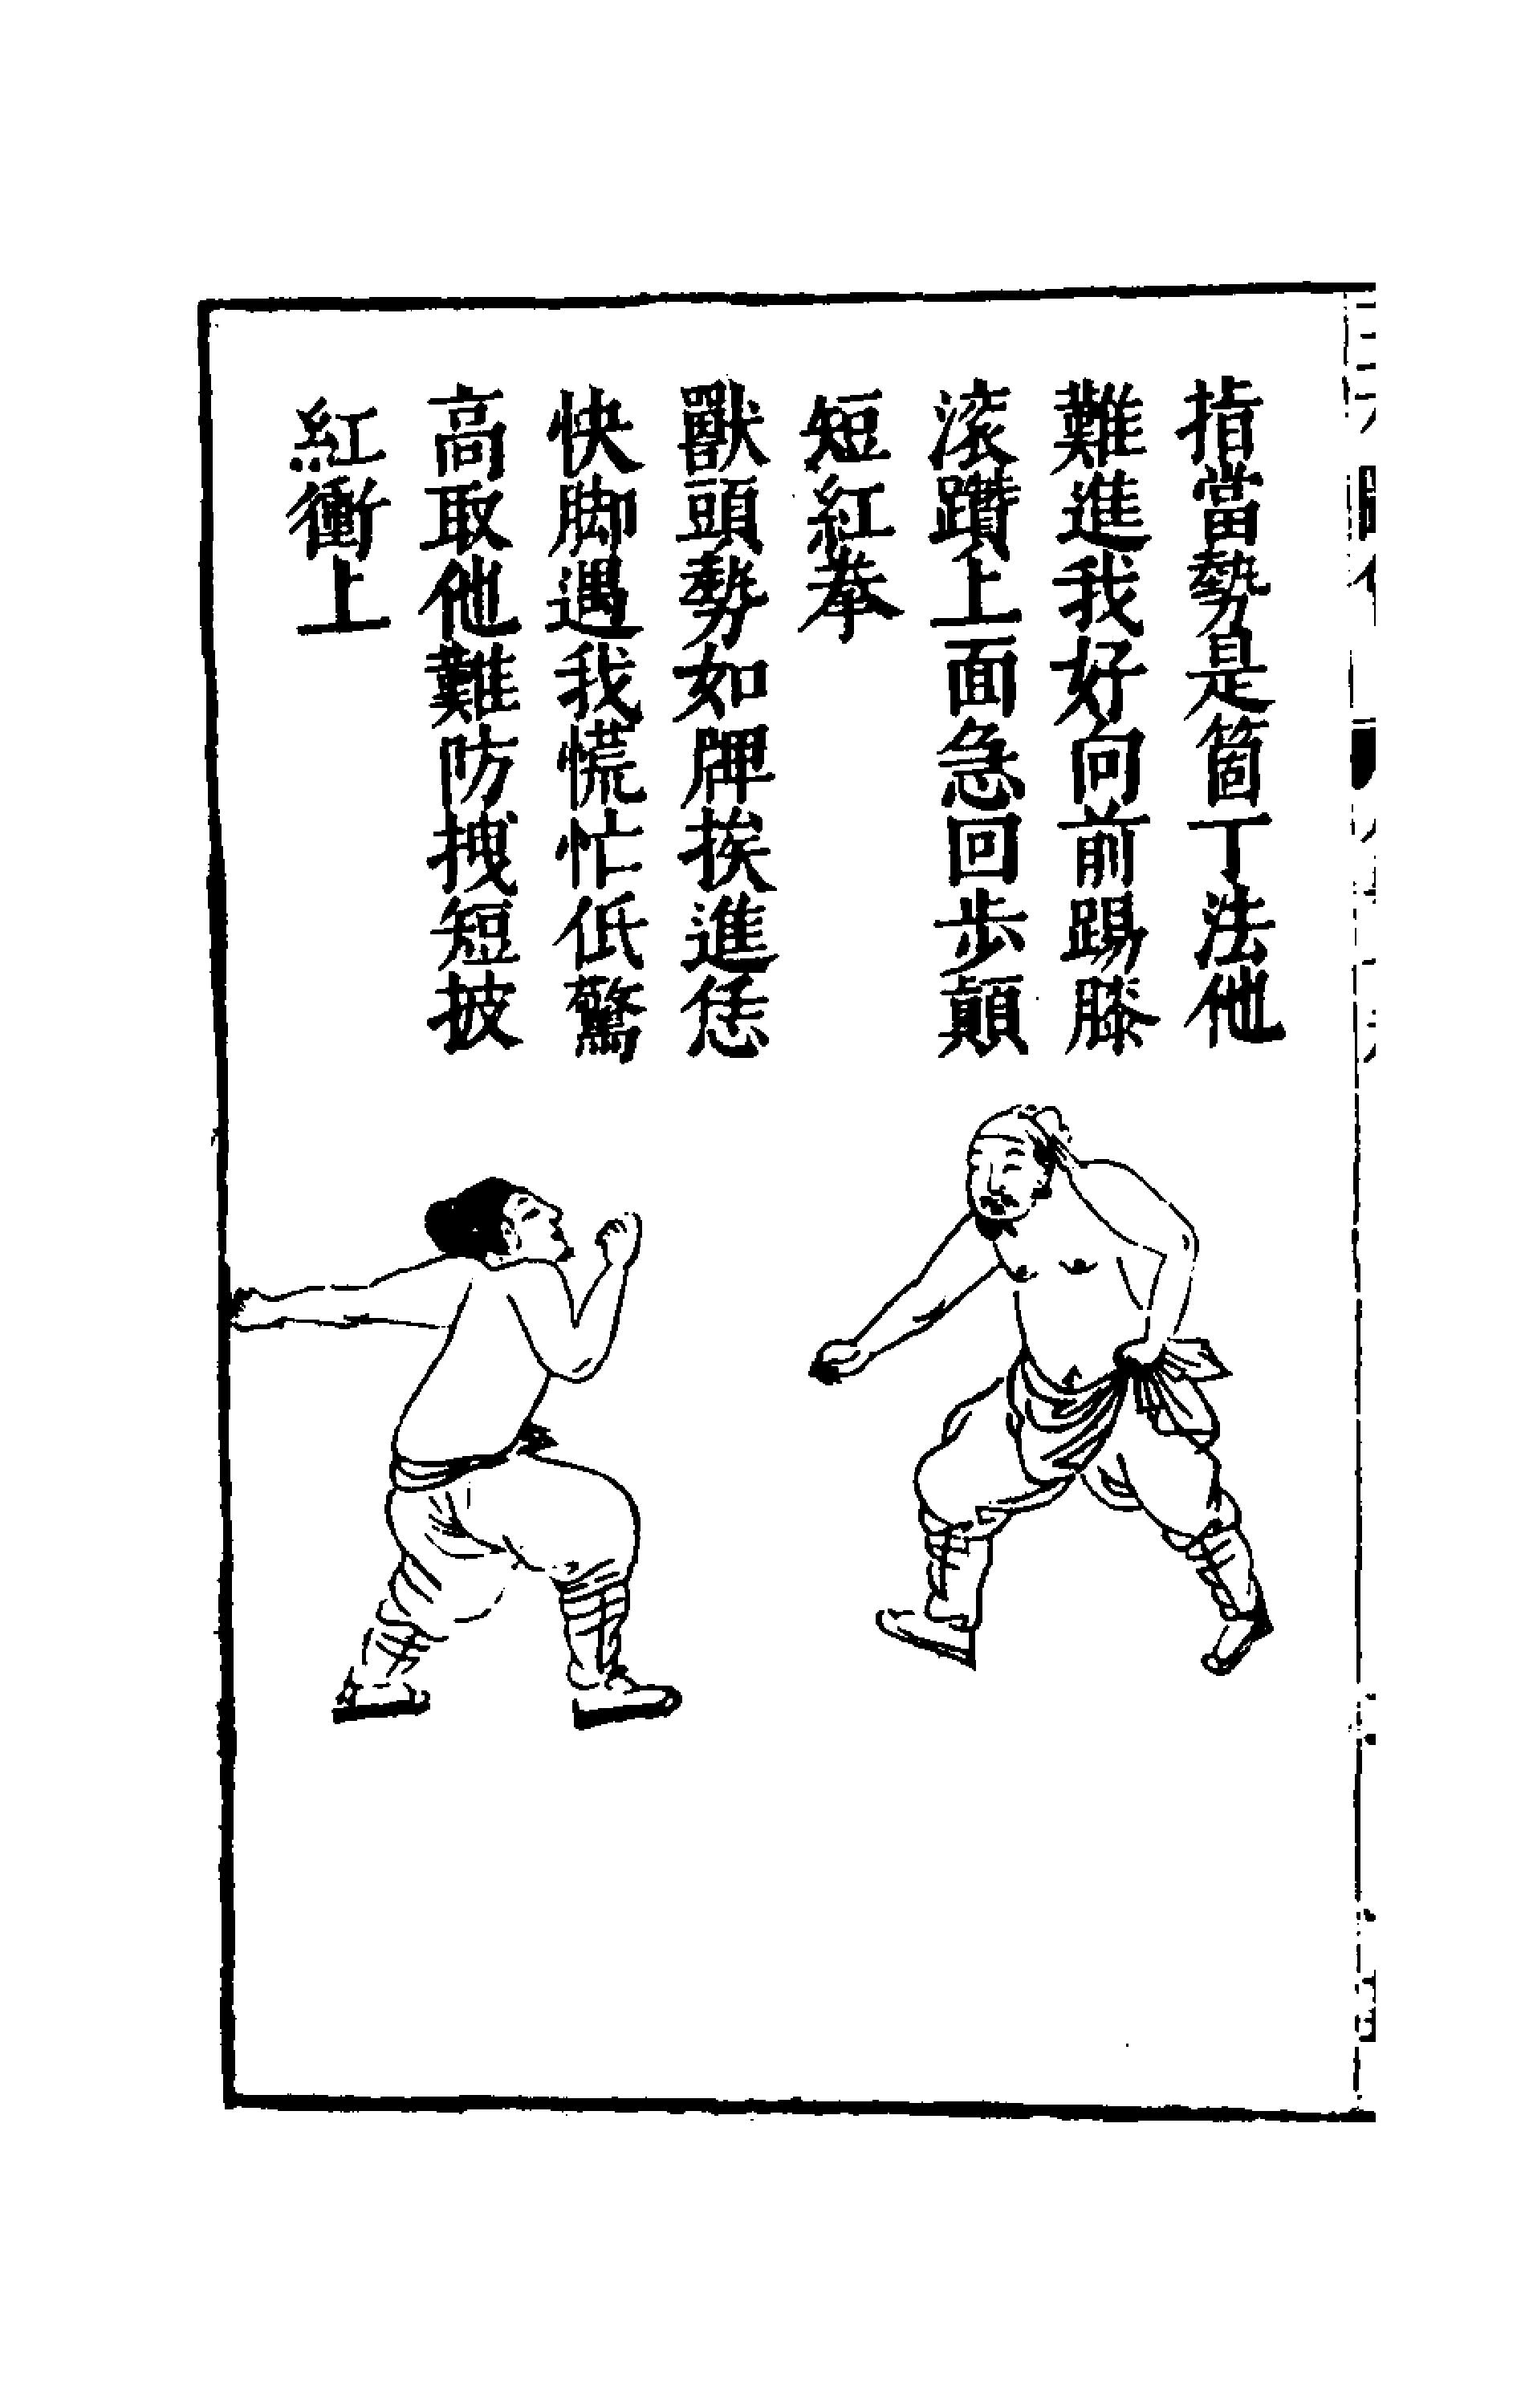 指當勢是箇丁法他
難進我好向前踢膝
滚躦上面急回步顛
短紅拳
獸頭勢如牌挨進恁
快脚遇我慌忙低驚
高取他難防拽短披
紅衝上